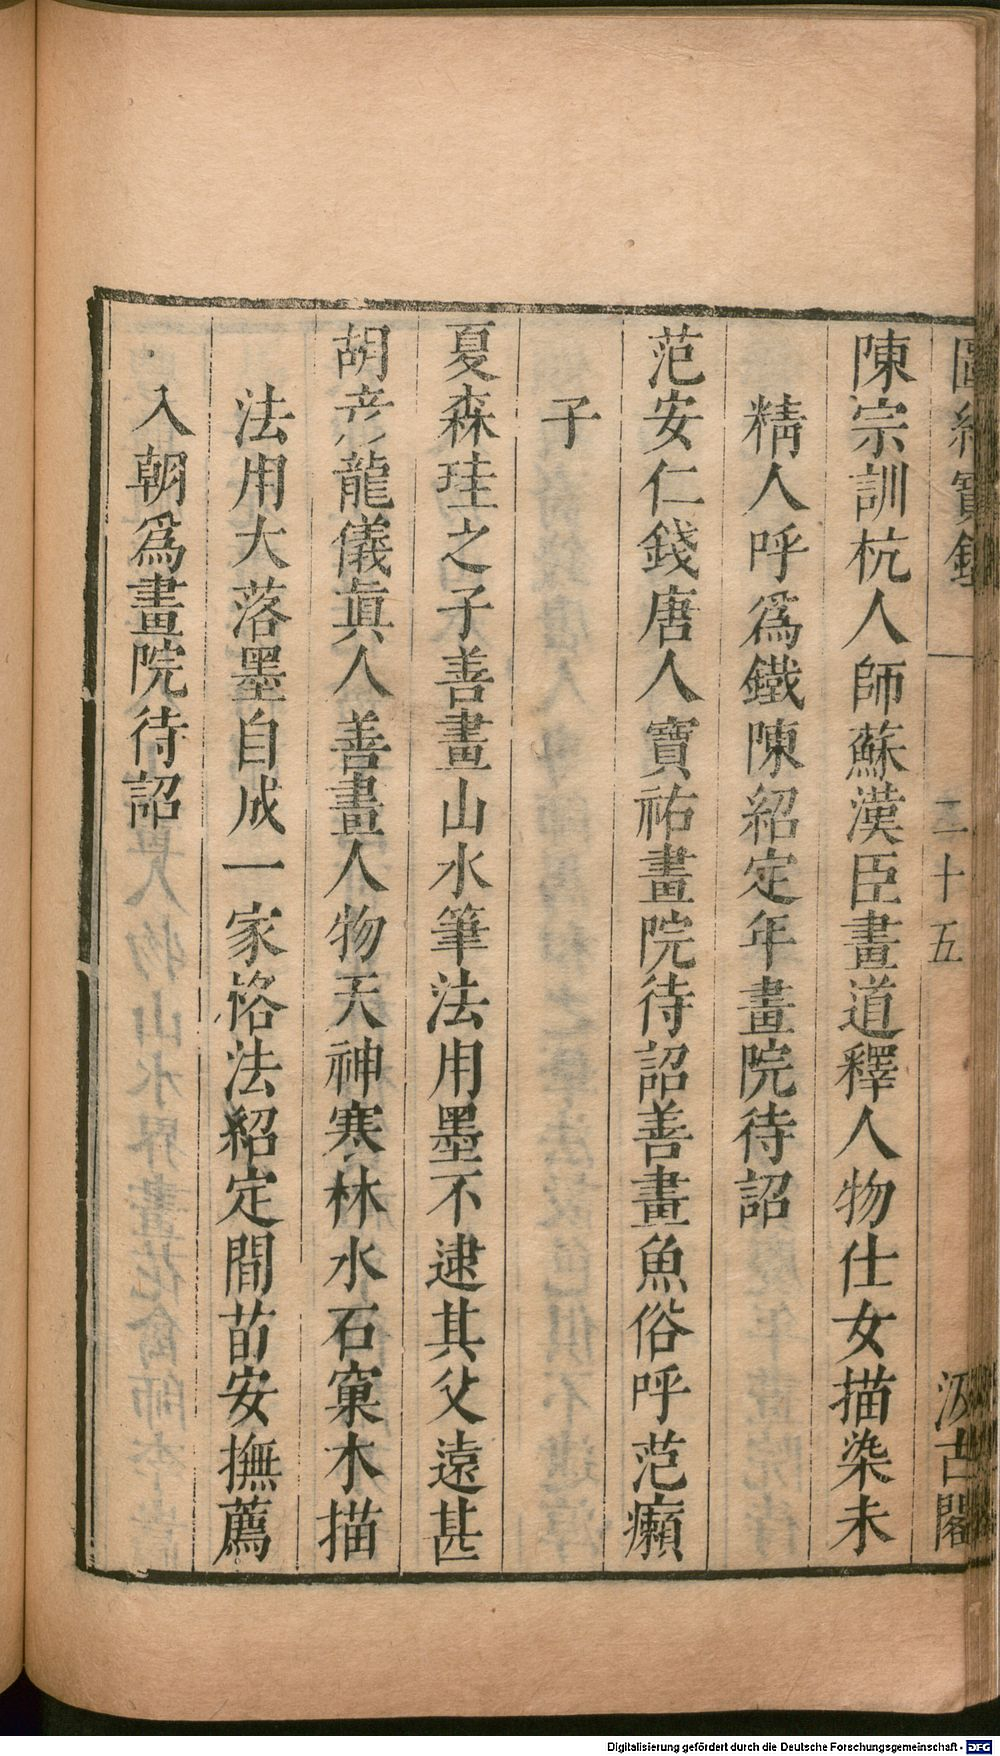 圖繪寶鑑 二十五 汲古閣
陳宗訓杭人師蘇漢臣畫道釋人物仕女描染未
精人呼爲鐵陳紹定年畫院待詔
范安仁錢唐人寶祐畫院待詔善畫魚俗呼范癩
子
夏森珪之子善畫山水筆法用墨不逮其父遠甚
胡彦龍儀眞人善畫人物天神寒林水石窠木描
法用大落墨自成一家格法紹定間荀安撫薦
入朝爲畫院待詔
Digitalisierung gefördert durch die Deutsche Forschungsgemeinschaft - DFG